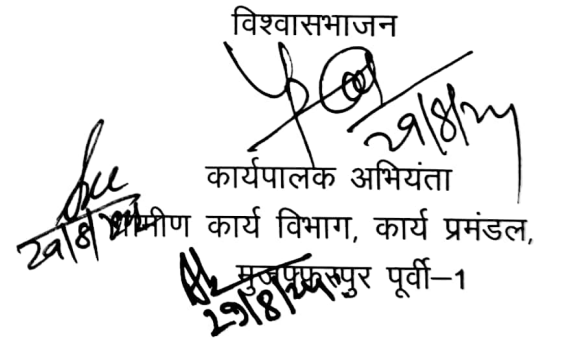 विश्वासभाजन
29/8/24
कार्यपालक अभियंता
29/8/24 ग्रामीण कार्य विभाग, कार्य प्रमंडल,
मुजफ्फरपुर पूर्वी–1
29/8/24